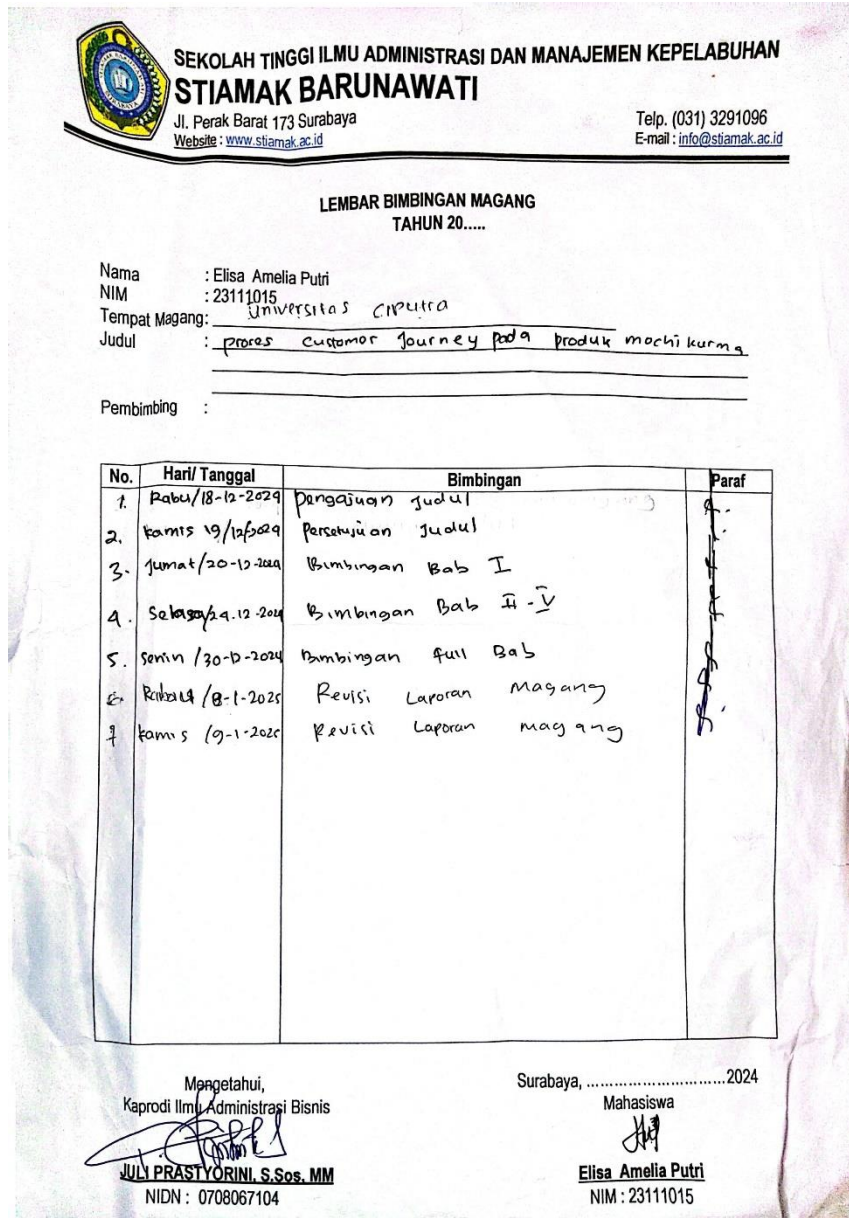 SEKOLAH TINGGI ILMU ADMINISTRASI DAN MANAJEMEN KEPELABUHAN
STIAMAK BARUNAWATI
Jl. Perak Barat 173 Surabaya Telp. (031) 3291096
Website : www.stiamak.ac.id E-mail : info@stiamak.ac.id
LEMBAR BIMBINGAN MAGANG
TAHUN 20.....
Nama : Elisa Amelia Putri
NIM : 23111015
Tempat Magang: Universitas Ciputra
Judul : proses customor Journey pada produk mochi kurma
Pembimbing :
No. Hari/ Tanggal Bimbingan Paraf
1. Rabu/18-12-2024 pengajuan Judul
2. kamis 19/12/2024 Persetujuan Judul
3. Jumat/20-12-2024 Bimbingan Bab I
4. Selasa/24.12-2024 Bimbingan Bab II - V
5. Senin /30-12-2024 Bimbingan full Bab
6 /8-1-2025 Revisi Laporan Magang
7 kamis /9-1-2025 Revisi Laporan magang
Mengetahui,
Kaprodi Ilmu Administrasi Bisnis
JULI PRASTYORINI, S.Sos, MM
NIDN : 0708067104
Surabaya, ..............................2024
Mahasiswa
Elisa Amelia Putri
NIM : 23111015